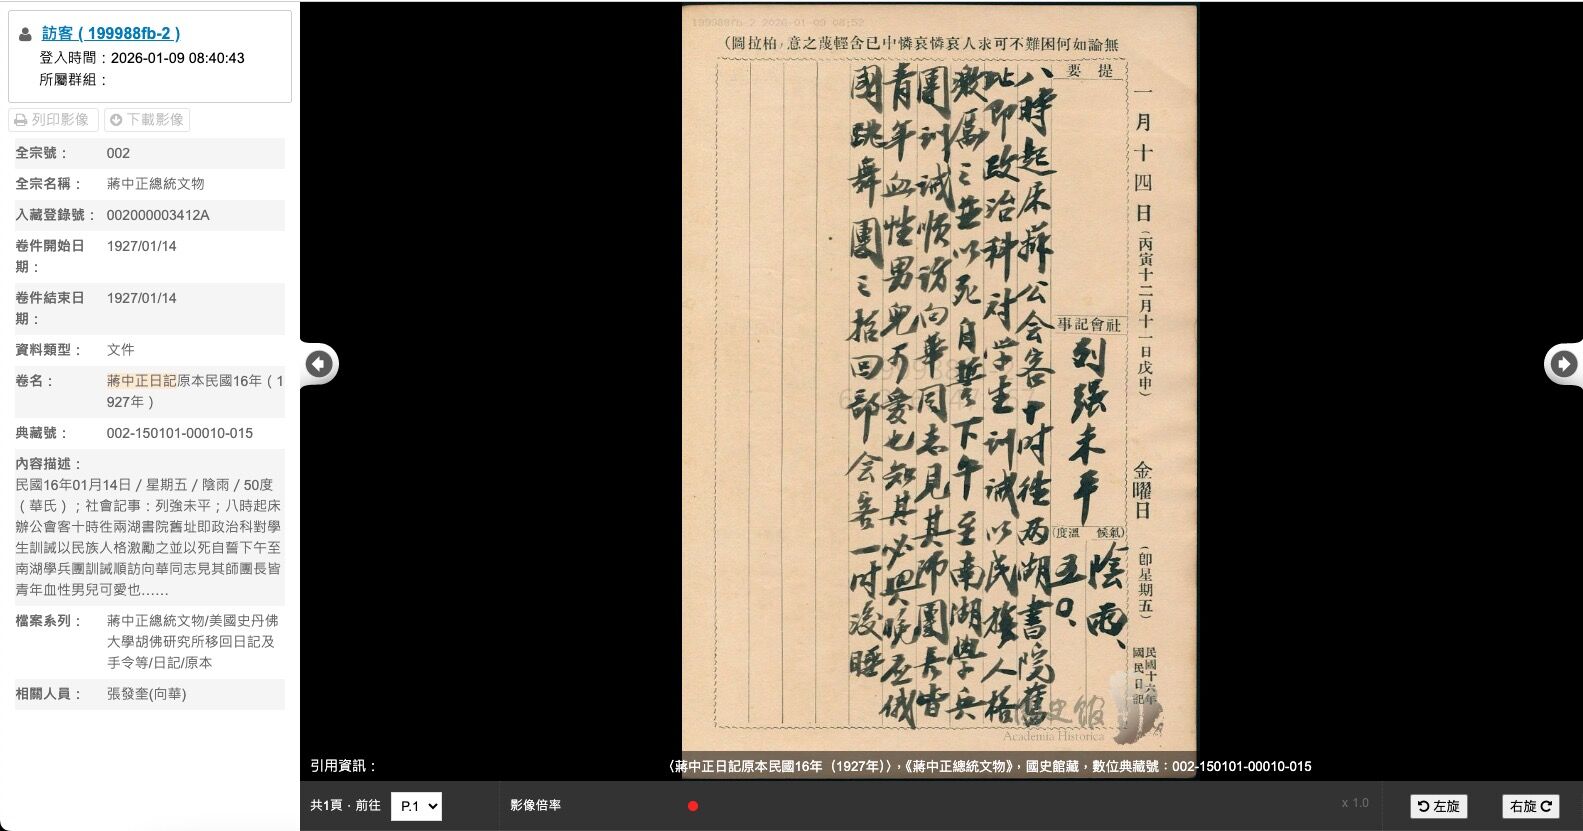 訪客 ( 199988fb-2 )
登入時間：2026-01-09 08:40:43
所屬群組：
列印影像
下載影像
全宗號：
002
全宗名稱：
蔣中正總統文物
入藏登錄號：
002000003412A
卷件開始日
期：
1927/01/14
卷件結束日
期：
1927/01/14
資料類型：
文件
卷名：
蔣中正日記原本民國16年（1
927年）
典藏號：
002-150101-00010-015
內容描述：
民國16年01月14日 / 星期五 / 陰雨 / 50度
（華氏）；社會記事：列強未平；八時起床
辦公會客十時往兩湖書院舊址即政治科對學
生訓誡以民族人格激勵之並以死自誓下午至
南湖學兵團訓誡順訪向華同志見其師團長皆
青年血性男兒可愛也……
檔案系列：
蔣中正總統文物/美國史丹佛
大學胡佛研究所移回日記及
手令等/日記/原本
相關人員：
張發奎(向華)
199988fb-2 2026-01-09 08:52
無論如何困難不可求人哀憐哀憐中已含輕蔑之意，（柏拉圖）
一月十四日（丙寅十二月十一日戊申）
金曜日（卽星期五）
民國十六年
國民日記
提要
社會記事
列强未平
（氣候 溫度）
陰雨、
五〇、
八時起床辦公会客十时往两湖書院舊
址即政治科对学生训诫以民族人格
激厲之並以死自誓下午至南湖學兵
團训诫順訪向華同志見其师團长皆
青年血性男兒可愛也知其必與晚应俄
國跳舞團之招回部会客一时後睡
國史館
Academia Historica
引用資訊：
〈蔣中正日記原本民國16年（1927年）〉，《蔣中正總統文物》，國史館藏，數位典藏號：002-150101-00010-015
共1頁，前往
P.1
影像倍率
x 1.0
左旋
右旋